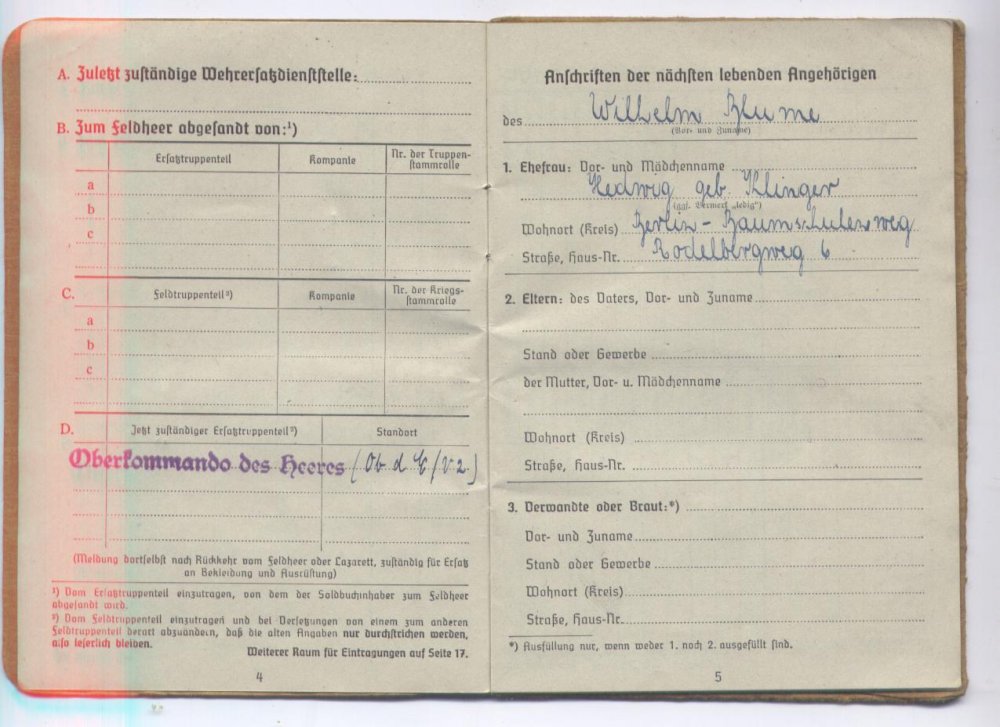 A. Zuletzt zuständige Wehrersatzdienststelle:
B. Zum Feldheer abgesandt von:¹)
Ersatztruppenteil Kompanie Nr. der Truppen-
stammrolle
a
b
c
C. Feldtruppenteil²) Kompanie Nr. der Kriegs-
stammrolle
a
b
c
D. Jetzt zuständiger Ersatztruppenteil²) Standort
Oberkommando des Heeres (Ob d E/V2.)
(Meldung dortselbst nach Rückkehr vom Feldheer oder Lazarett, zuständig für Ersatz
an Bekleidung und Ausrüstung)
¹) Vom Ersatztruppenteil einzutragen, von dem der Soldbuchinhaber zum Feldheer
abgesandt wird.
²) Vom Feldtruppenteil einzutragen und bei Versetzungen von einem zum anderen
Feldtruppenteil derart abzuändern, daß die alten Angaben nur durchstrichen werden,
also leserlich bleiben.
Weiterer Raum für Eintragungen auf Seite 17.
4
Anschriften der nächsten lebenden Angehörigen
des Wilhelm Blume
(Vor- und Zuname)
1. Ehefrau: Vor- und Mädchenname
Hedwig geb. Klinger
(ggf. Vermerk „ledig")
Wohnort (Kreis) Berlin - Baumschulenweg
Straße, Haus-Nr. Rodelbergweg 6
2. Eltern: des Vaters, Vor- und Zuname
Stand oder Gewerbe
der Mutter, Vor- u. Mädchenname
Wohnort (Kreis)
Straße, Haus-Nr.
3. Verwandte oder Braut:*)
Vor- und Zuname
Stand oder Gewerbe
Wohnort (Kreis)
Straße, Haus-Nr.
*) Ausfüllung nur, wenn weder 1. noch 2. ausgefüllt sind.
5